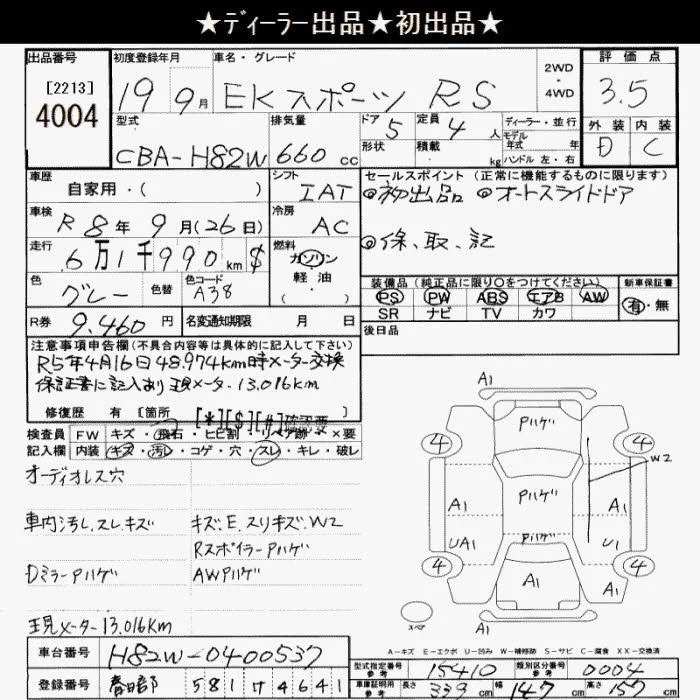 ★ディーラー出品★初出品★
出品番号
[2213]
4004
初度登録年月
19 9月
車名・グレード
EKスポーツ RS
2WD
・
4WD
評価点
3.5
外装 内装
D C
型式
CBA-H82W
排気量
660 cc
ドア 5
形状
定員 4 人
積載 kg
ディーラー・並行
モデル
年式 年
ハンドル 左・右
車歴
自家用・( )
シフト
IAT
セールスポイント (正常に機能するものに限ります)
◎初出品 ◎オートスライドドア
◎保、取、記
車検
R8年 9月(26日)
冷房
AC
走行
6万1千990km $
燃料
ガソリン
軽油
( ・ )
色
グレー
色替
色コード
A38
装備品 (純正品に限り○をつけてください)
PS PW ABS エアB AW
SR ナビ TV カワ
新車保証書
有・無
R券
9,460円
名変通知期限 月 日
後日品
注意事項申告欄(不具合内容等は具体的に記入して下さい)
R5年4月16日48,974km時メーター交換
保証書に記入あり現メーター13,016km
修復歴 有 [箇所 [*][$][#]確認要
検査員
記入欄
FW キズ・飛石・ヒビ割・リペア跡・X・X要
内装 キズ・汚レ・コゲ・穴・スレ・キレ・破レ
オーディオレス穴
車内汚し、スレ、キズ
キズ、E、スリキズ、W2
RスポイラーPハゲ
DミラーPハゲ
AWPハゲ
現メーター13,016km
A1
Pハゲ
4 4
W2
A1 Pハゲ A1
UA1 Pハゲ U1
4 4
A1 A1
A1
スペア
A-キズ E-エクボ U-凹み W-補修跡 S-サビ C-腐食 XX-交換済
車台番号
H82W-0400537
登録番号
春日部 581 け 4641
型式指定番号
参考
15410
類別区分番号
参考
0004
車庫証明用
参考
長さ 339cm 幅 147cm 高さ 155cm